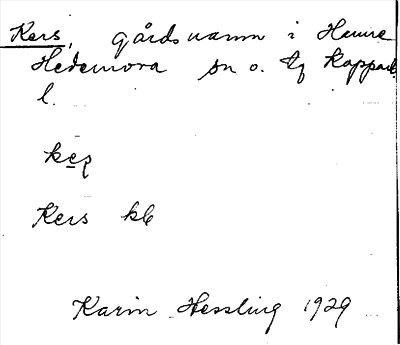 Kers, gårdsnamn i
Hedemora sn o. tg Kopparb.
l.
Kers kb
Karin Hessling 1929